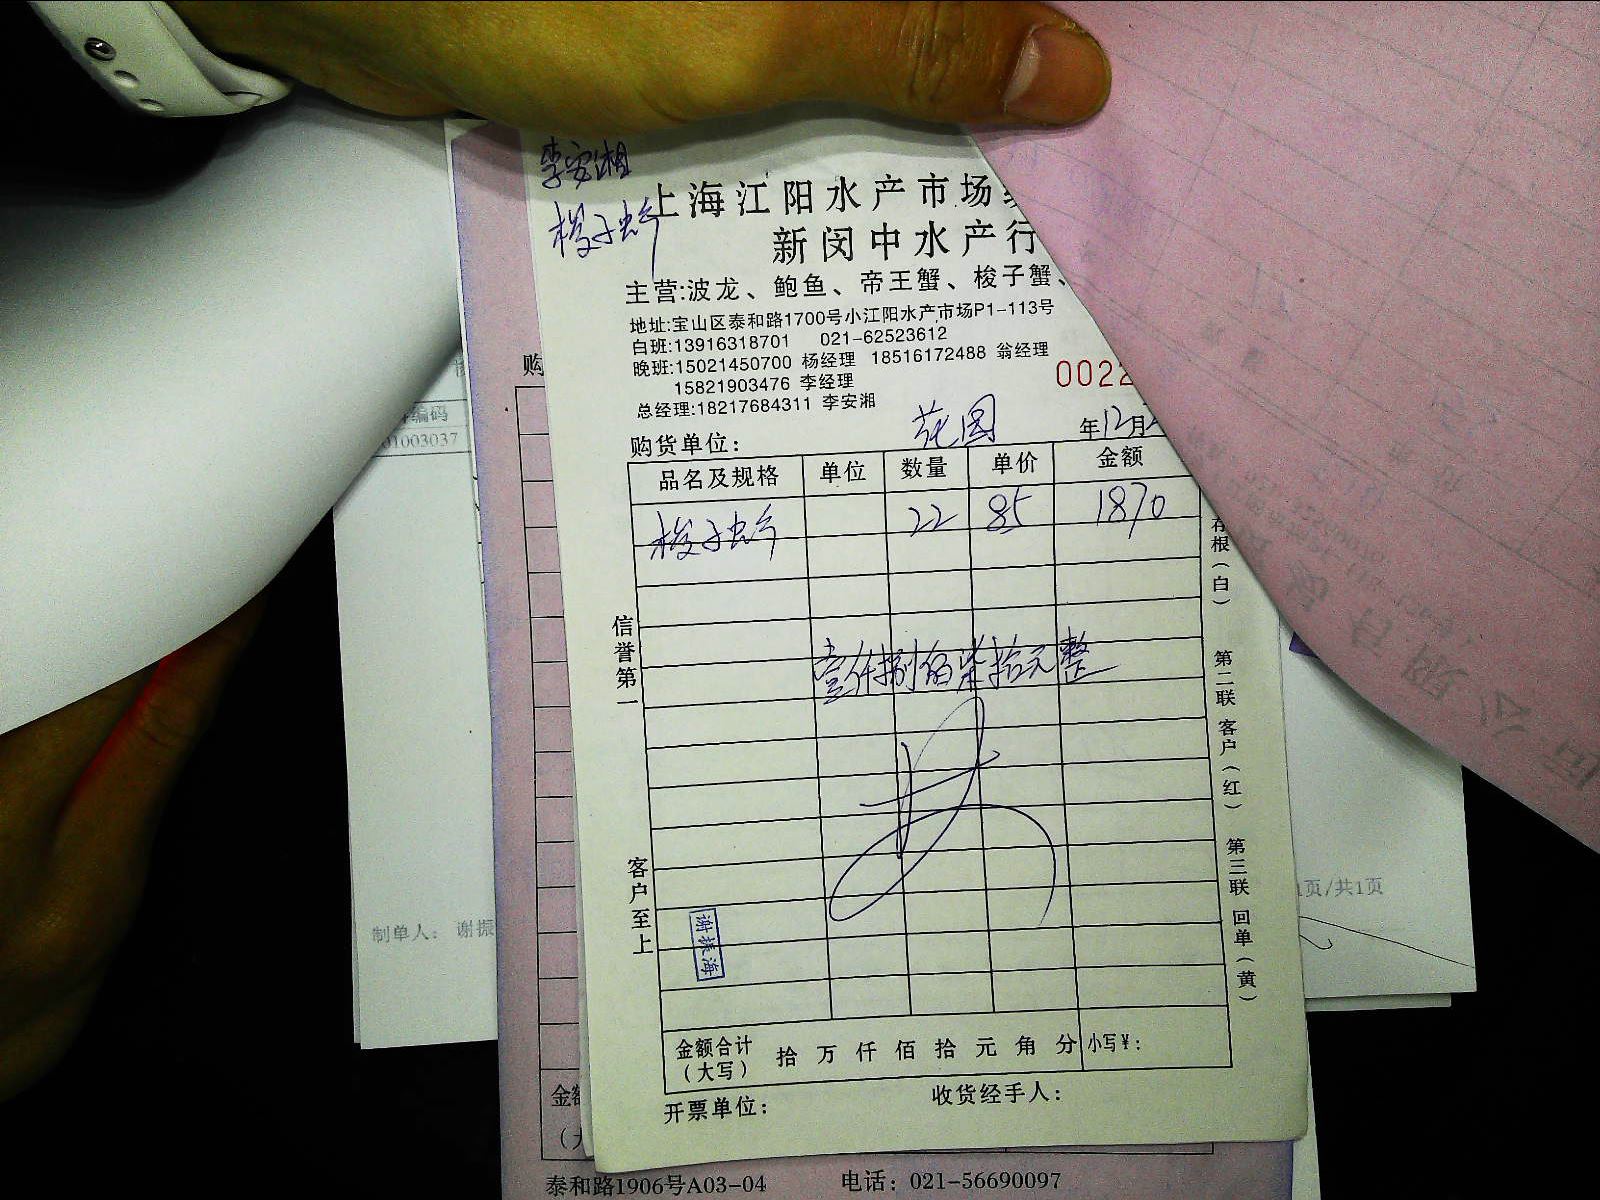 李安湘
梭子虾
上海江阳水产市场
新闵中水产行
主营:波龙、鲍鱼、帝王蟹、梭子蟹、
地址:宝山区泰和路1700号小江阳水产市场P1-113号
白班:13916318701 021-62523612
晚班:15021450700 杨经理 18516172488 翁经理
15821903476 李经理
总经理:18217684311 李安湘
0022
购货单位: 花园 年12月
品名及规格 单位 数量 单价 金额
梭子虾 22 85 1870
壹仟捌佰柒拾元整
信誉第一
客户至上
存根(白)
第二联 客户(红)
第三联 回单(黄)
谢振海
金额合计(大写) 拾 万 仟 佰 拾 元 角 分 小写¥:
开票单位: 收货经手人:
购
编码
01003037
制单人: 谢振
1页/共1页
泰和路1906号A03-04 电话: 021-56690097